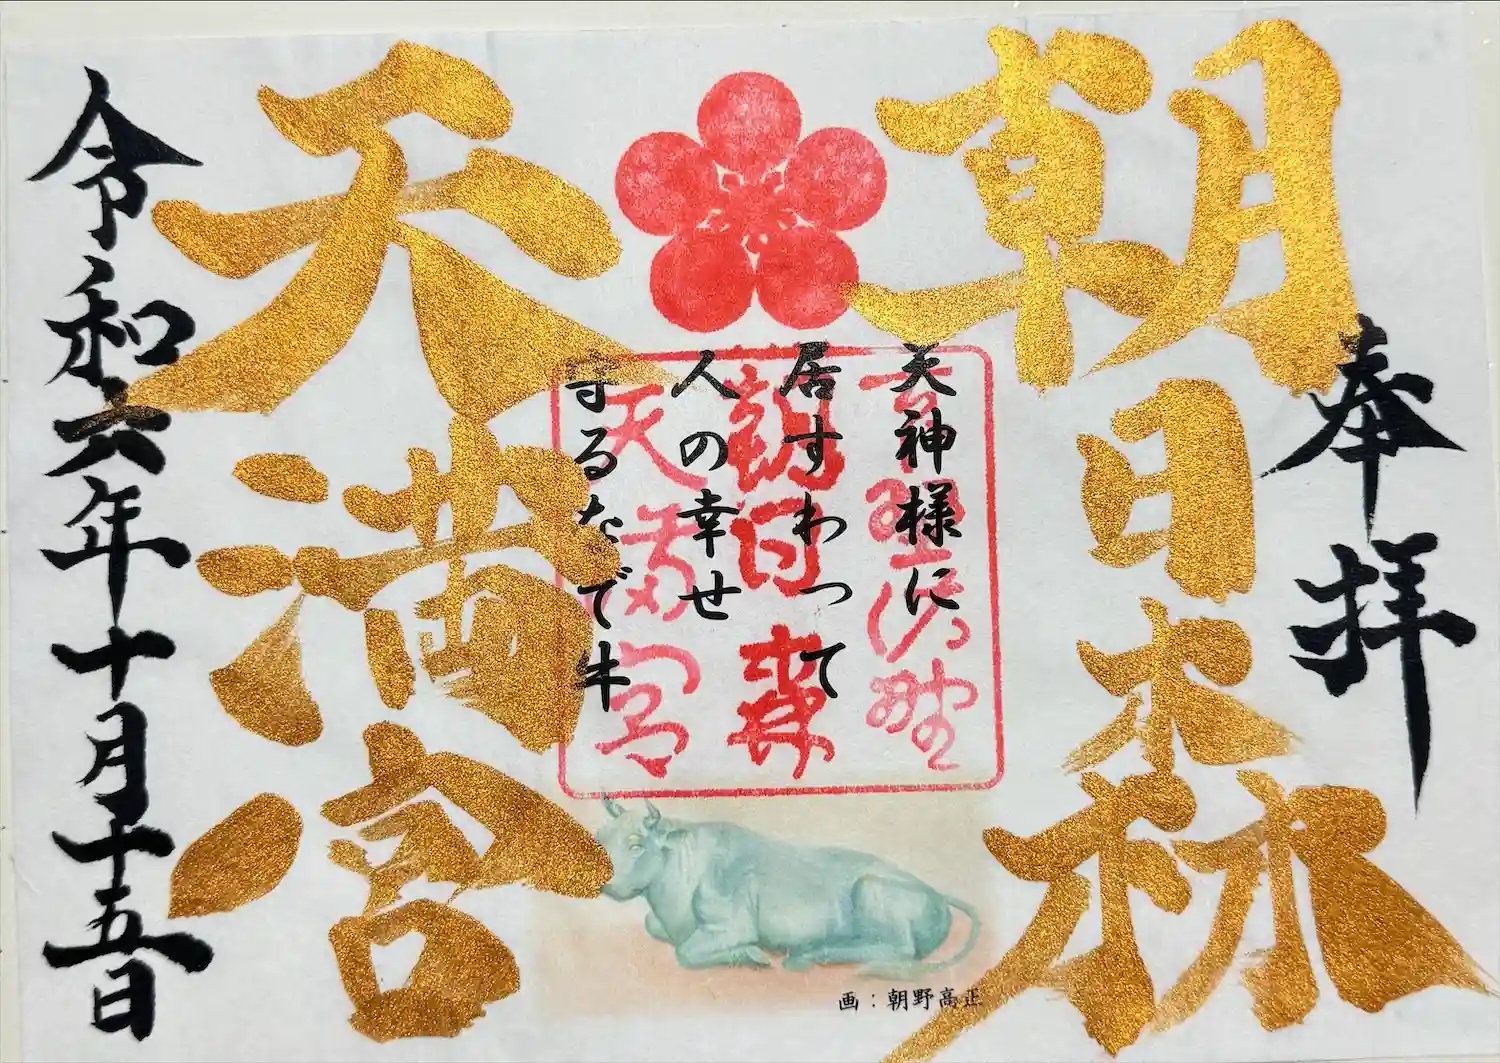 奉拝
朝日森
天満宮
天神様に
居すわって
人の幸せ
守るなで牛
朝日森
天満宮
令和六年十月十五日
画：朝野高正